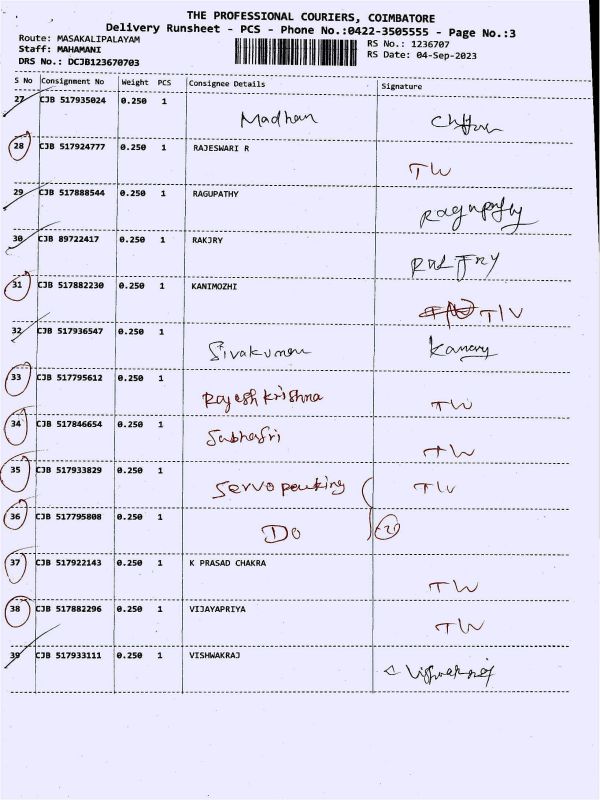 THE PROFESSIONAL COURIERS, COIMBATORE
Delivery Runsheet - PCS - Phone No.:0422-3505555 - Page No.:3
Route: MASAKALIPALAYAM
Staff: MAHAMANI
DRS No.: DCJB123670703
RS No.: 1236707
RS Date: 04-Sep-2023
S No Consignment No Weight PCS Consignee Details Signature
27 CJB 517935024 0.250 1 Madhan
28 CJB 517924777 0.250 1 RAJESWARI R
TW
29 CJB 517888544 0.250 1 RAGUPATHY
Ragupathy
30 CJB 89722417 0.250 1 RAKJRY
31 CJB 517882230 0.250 1 KANIMOZHI
TW
32 CJB 517936547 0.250 1
Sivakumar
33 CJB 517795612 0.250 1
Rajesh krishna TW
34 CJB 517846654 0.250 1
TW
35 CJB 517933829 0.250 1
Servo TW
36 CJB 517795808 0.250 1
Do
37 CJB 517922143 0.250 1 K PRASAD CHAKRA
TW
38 CJB 517882296 0.250 1 VIJAYAPRIYA
TW
39 CJB 517933111 0.250 1 VISHWAKRAJ